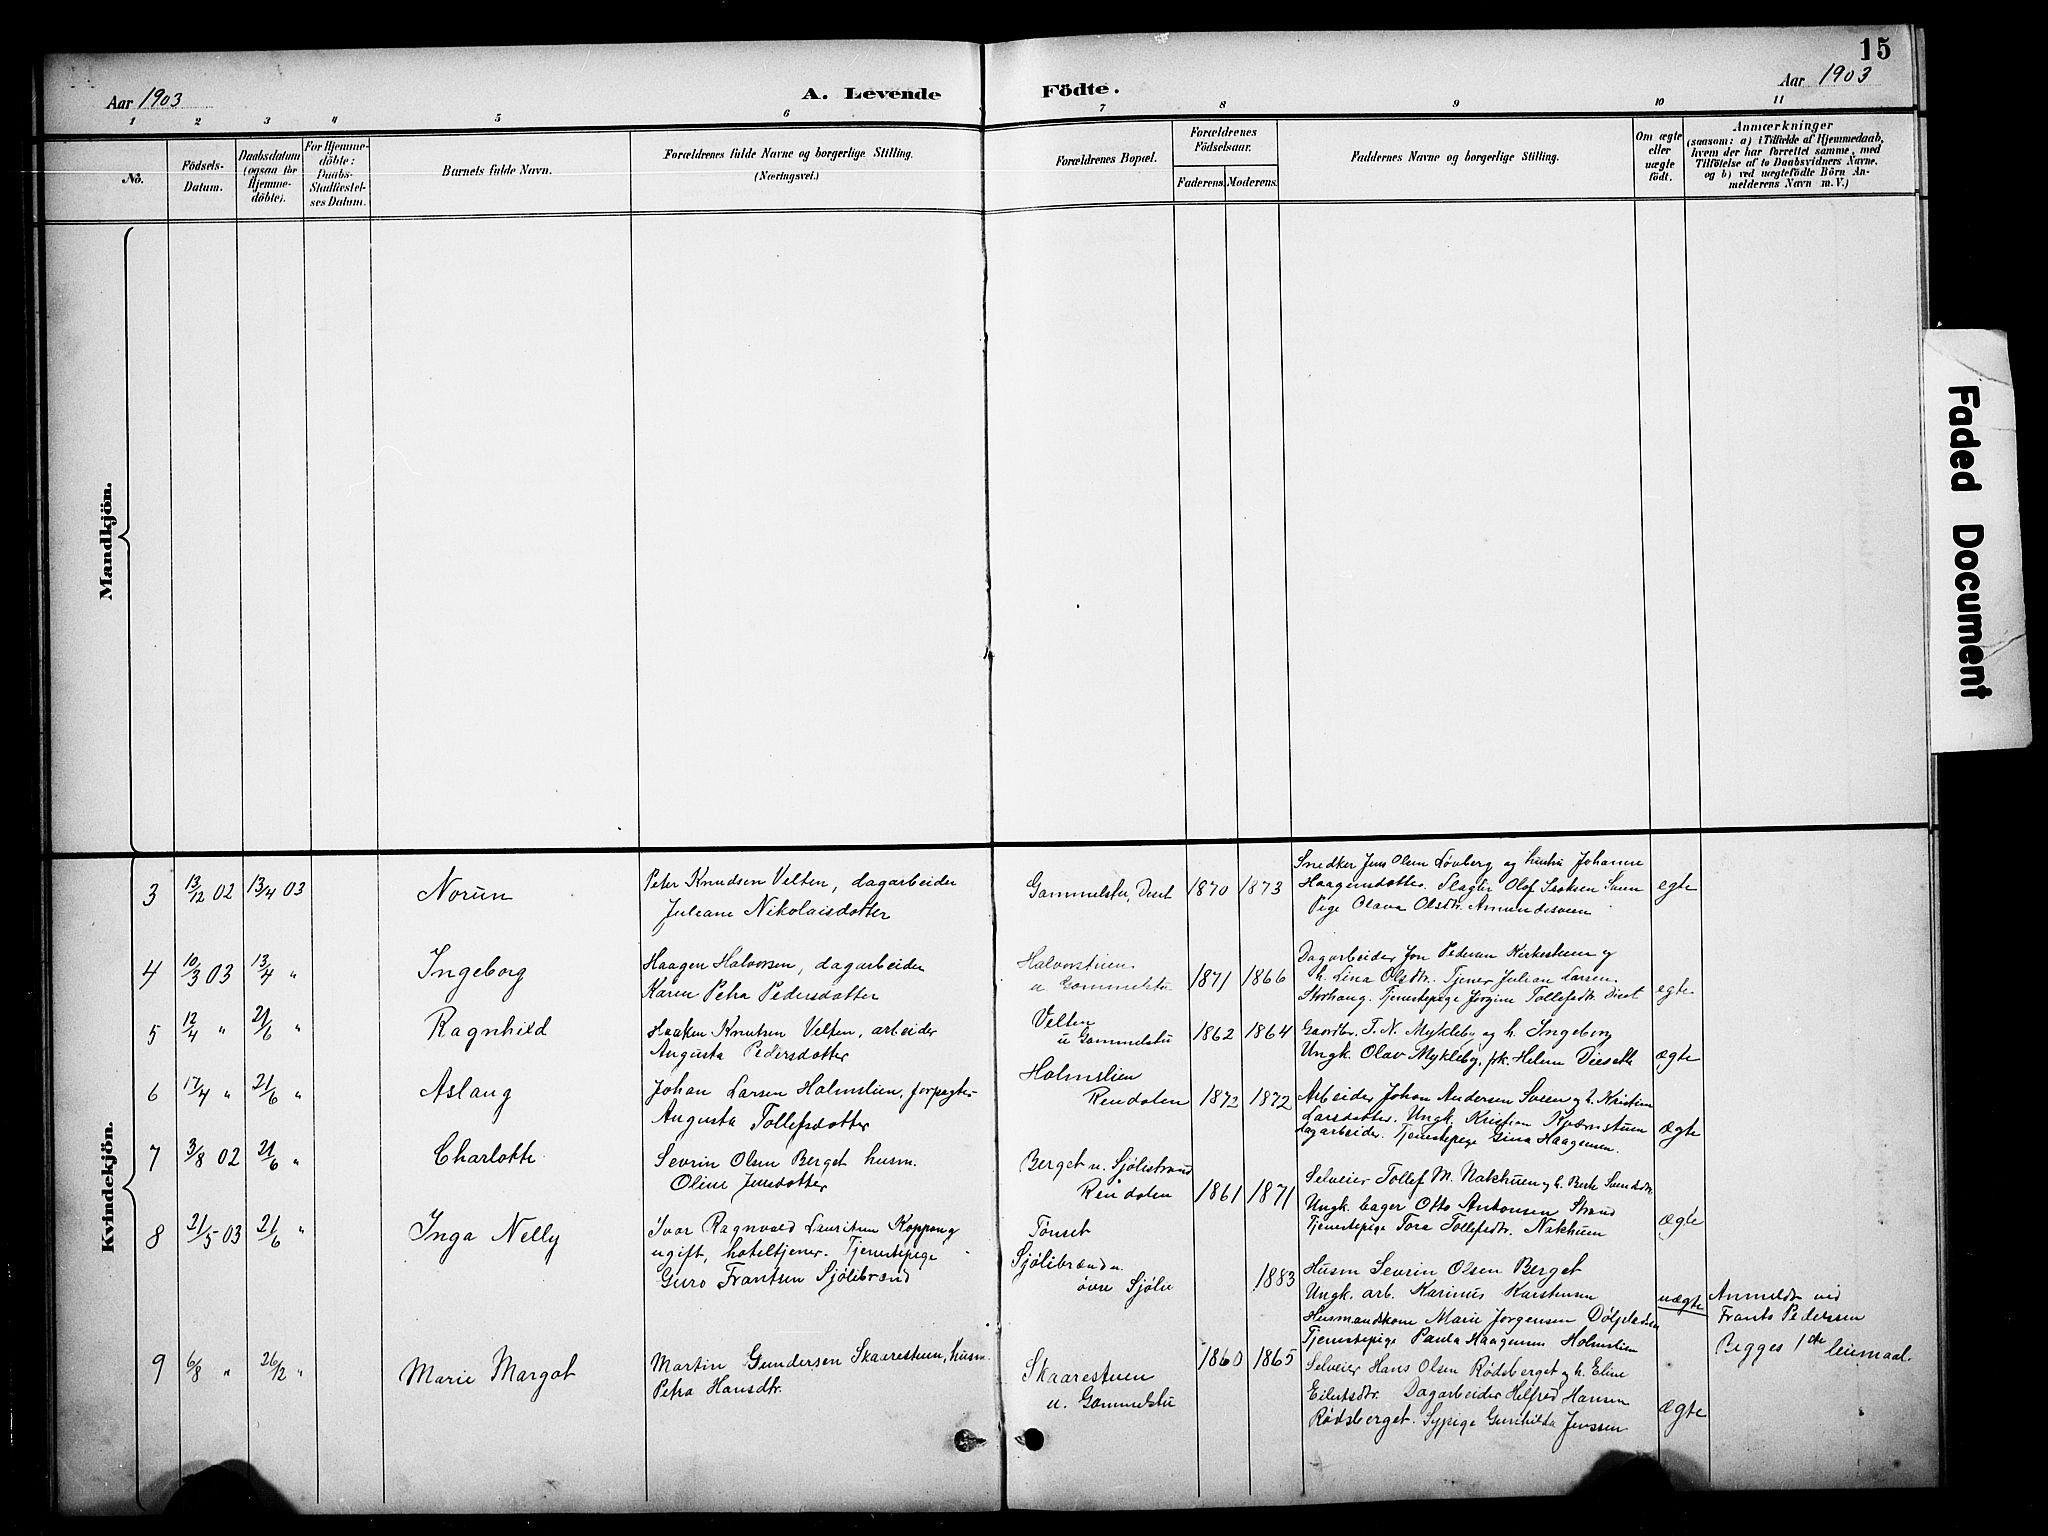 15
Aar 1903
A. Levende Födte.
Aar 1903
1 2 3 4 5 6 7 8 9 10 11
No.
Födsels-
Datum.
Daabsdatum
(ogsaa for
Hjemme-
döbte).
For Hjemme-
döbte:
Daabs-
Stadfæstel-
ses Datum.
Barnets fulde Navn.
Forældrenes fulde Navne og borgerlige Stilling.
(Næringsvei.)
Forældrenes Bopæl.
Forældrenes
Födselsaar.
Faderens. Moderens.
Faddernes Navne og borgerlige Stilling.
Om ægte
eller
uægte
födt.
Anmærkninger
(saasom: a) i Tilfælde af Hjemmedaab,
hvem der har forrettet samme, med
Tilföielse af to Daabsvidners Navne,
og b) ved uægtefödte Börn An-
melderens Navn m. V.)
Mandkjön.
Kvindekjön.
Faded Document
3 13/12 02 13/4 03 Norun
Peter Knudsen Velten, dagarbeider
Juliane Nikolaisdatter
Gammelstu, Deset 1870 1873
Snedker Jens Olsen Løvberg og hustru Johanne
Haagensdatter. Slagter Olof Isaksen
Pige Olava Olsdtr. Amundsveen
egte
4 10/3 03 13/4 " Ingeborg
Haagen Halvorsen, dagarbeider
Karen Petra Pedersdatter
Halvorstuen
u Gammelstu 1871 1866
Dagarbeider Jon Pedersen Kirkestuen og
h. Lina Olsdtr. Tjener Julian Larsen
Storhaug. Tjenestepige Jørgine Tollefsdtr. Diset
egte
5 12/4 " 21/6 " Ragnhild
Haaken Knutsen Velten, arbeider
Augusta Pedersdatter
Velten
u Gammelstu 1862 1864
Gaardbr. T. N. Mykleby og h. Ingeborg
Ungk. Olav Mykleby, pk. Helene Dieseth
ægte
6 17/4 " 21/6 " Aslaug
Johan Larsen Holmslien, forpagter
Augusta Tollefsdatter
Holmslien
Rendalen 1873 1872
Arbeider Johan Andersen Sæsen og h. Kristine
Larsdatter. Ungk. Kristian Kjærnstuen
dagarbeider. Tjenestepige Gina Haagensen.
ægte
7 3/8 02 21/6 " Charlotte
Sevrin Olsen Berget husm.
Oline Jensdatter
Berget u. Sjølistrand
Rendalen 1861 1871
Selveier Tollef M. Nakhuen og h. Berte
Ungk. bager Otto Antonsen Strand
Tjenestepige Tora Tollefsdtr. Nakhuen
ægte
8 21/5 03 21/6 " Inga Nelly
Ivar Ragnvald Lauritsen Koppang
ugift, hoteltjener. Tjenestepige
Guro Frantsen Sjølibrænd
Tønset
Sjølibrænd u.
øvre Sjøli 1883
Husm Sevrin Olsen Berget
Ungk. arb. Karinus Karstensen
Husmandskone Marie Jørgensen Døljpladsen
Tjenestepige Paula Haagensen Holmslien
uægte
Anmeldt ved
Frants Pedersen
Begges 1ste leiemaal.
9 6/8 " 26/12 " Marie Margot
Martin Gundersen Skaarestuen, husm.
Petra Hansdtr.
Skaarestuen
u. Gammelstu 1860 1865
Selveier Hans Olsen Rødsberget og h. Eline
Eilertsdtr. Dagarbeider Helfred Hansen
Rødsberget. Sypige Gunhilda Jenssen
ægte